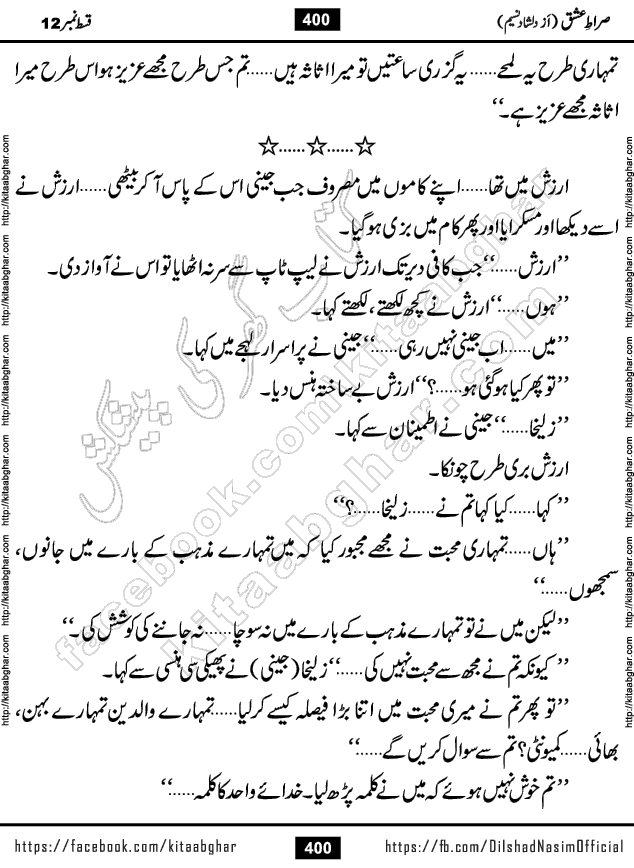 صراطِ عشق (از دلشاد نسیم)
400
قسط نمبر 12
تمہاری طرح یہ لمحے...... یہ گزری ساعتیں تو میرا اثاثہ ہیں......تم جس طرح مجھے عزیز ہو اس طرح میرا
اثاثہ مجھے عزیز ہے۔‘‘
☆......☆......☆
ارزش میں تھا......اپنے کاموں میں مصروف جب جینی اس کے پاس آکر بیٹھی......ارزش نے
اسے دیکھا اور مسکرایا اور پھر کام میں بزی ہوگیا۔
’’ارزش......‘‘جب کافی دیر تک ارزش نے لیپ ٹاپ سے سر نہ اٹھایا تو اس نے آواز دی۔
’’ہوں......‘‘ارزش نے کچھ لکھتے ،لکھتے کہا۔
’’میں......اب جینی نہیں رہی......‘‘جینی نے پراسرار لہجے میں کہا۔
’’تو پھر کیا ہوگئی ہو......؟‘‘ارزش بے ساختہ ہنس دیا۔
’’زلیخا......‘‘جینی نے اطمینان سے کہا۔
ارزش بری طرح چونکا۔
’’ کہا...... کیا کہا تم نے......زلیخا......؟‘‘
’’ہاں......تمہاری محبت نے مجھے مجبور کیا کہ میں تمہارے مذہب کے بارے میں جانوں،
سمجھوں......‘‘
’’لیکن میں نے تو تمہارے مذہب کے بارے میں نہ سوچا......نہ جاننے کی کوشش کی۔‘‘
’’ کیونکہ تم نے مجھ سے محبت نہیں کی......‘‘زلیخا (جینی) نے پھیکی سی ہنسی سے کہا۔
’’تو پھر تم نے میری محبت میں اتنا بڑا فیصلہ کیسے کرلیا......تمہارے والدین تمہارے بہن،
بھائی......کمیونٹی؟ تم سے سوال کریں گے......‘‘
’’تم خوش نہیں ہوئے کہ میں نے کلمہ پڑھ لیا۔ خدائے واحد کا کلمہ......‘‘
http://kitaabghar.com http://kitaabghar.com http://kitaabghar.com http://kitaabghar.com http://kitaabghar.com http://kitaabghar.com
http://kitaabghar.com http://kitaabghar.com http://kitaabghar.com http://kitaabghar.com http://kitaabghar.com http://kitaabghar.com
کتاب گھر کی پیشکش
facebook.com/kitaabghar
kitaabghar.com
https://facebook.com/kitaabghar
400
https://fb.com/DilshadNasimOfficial